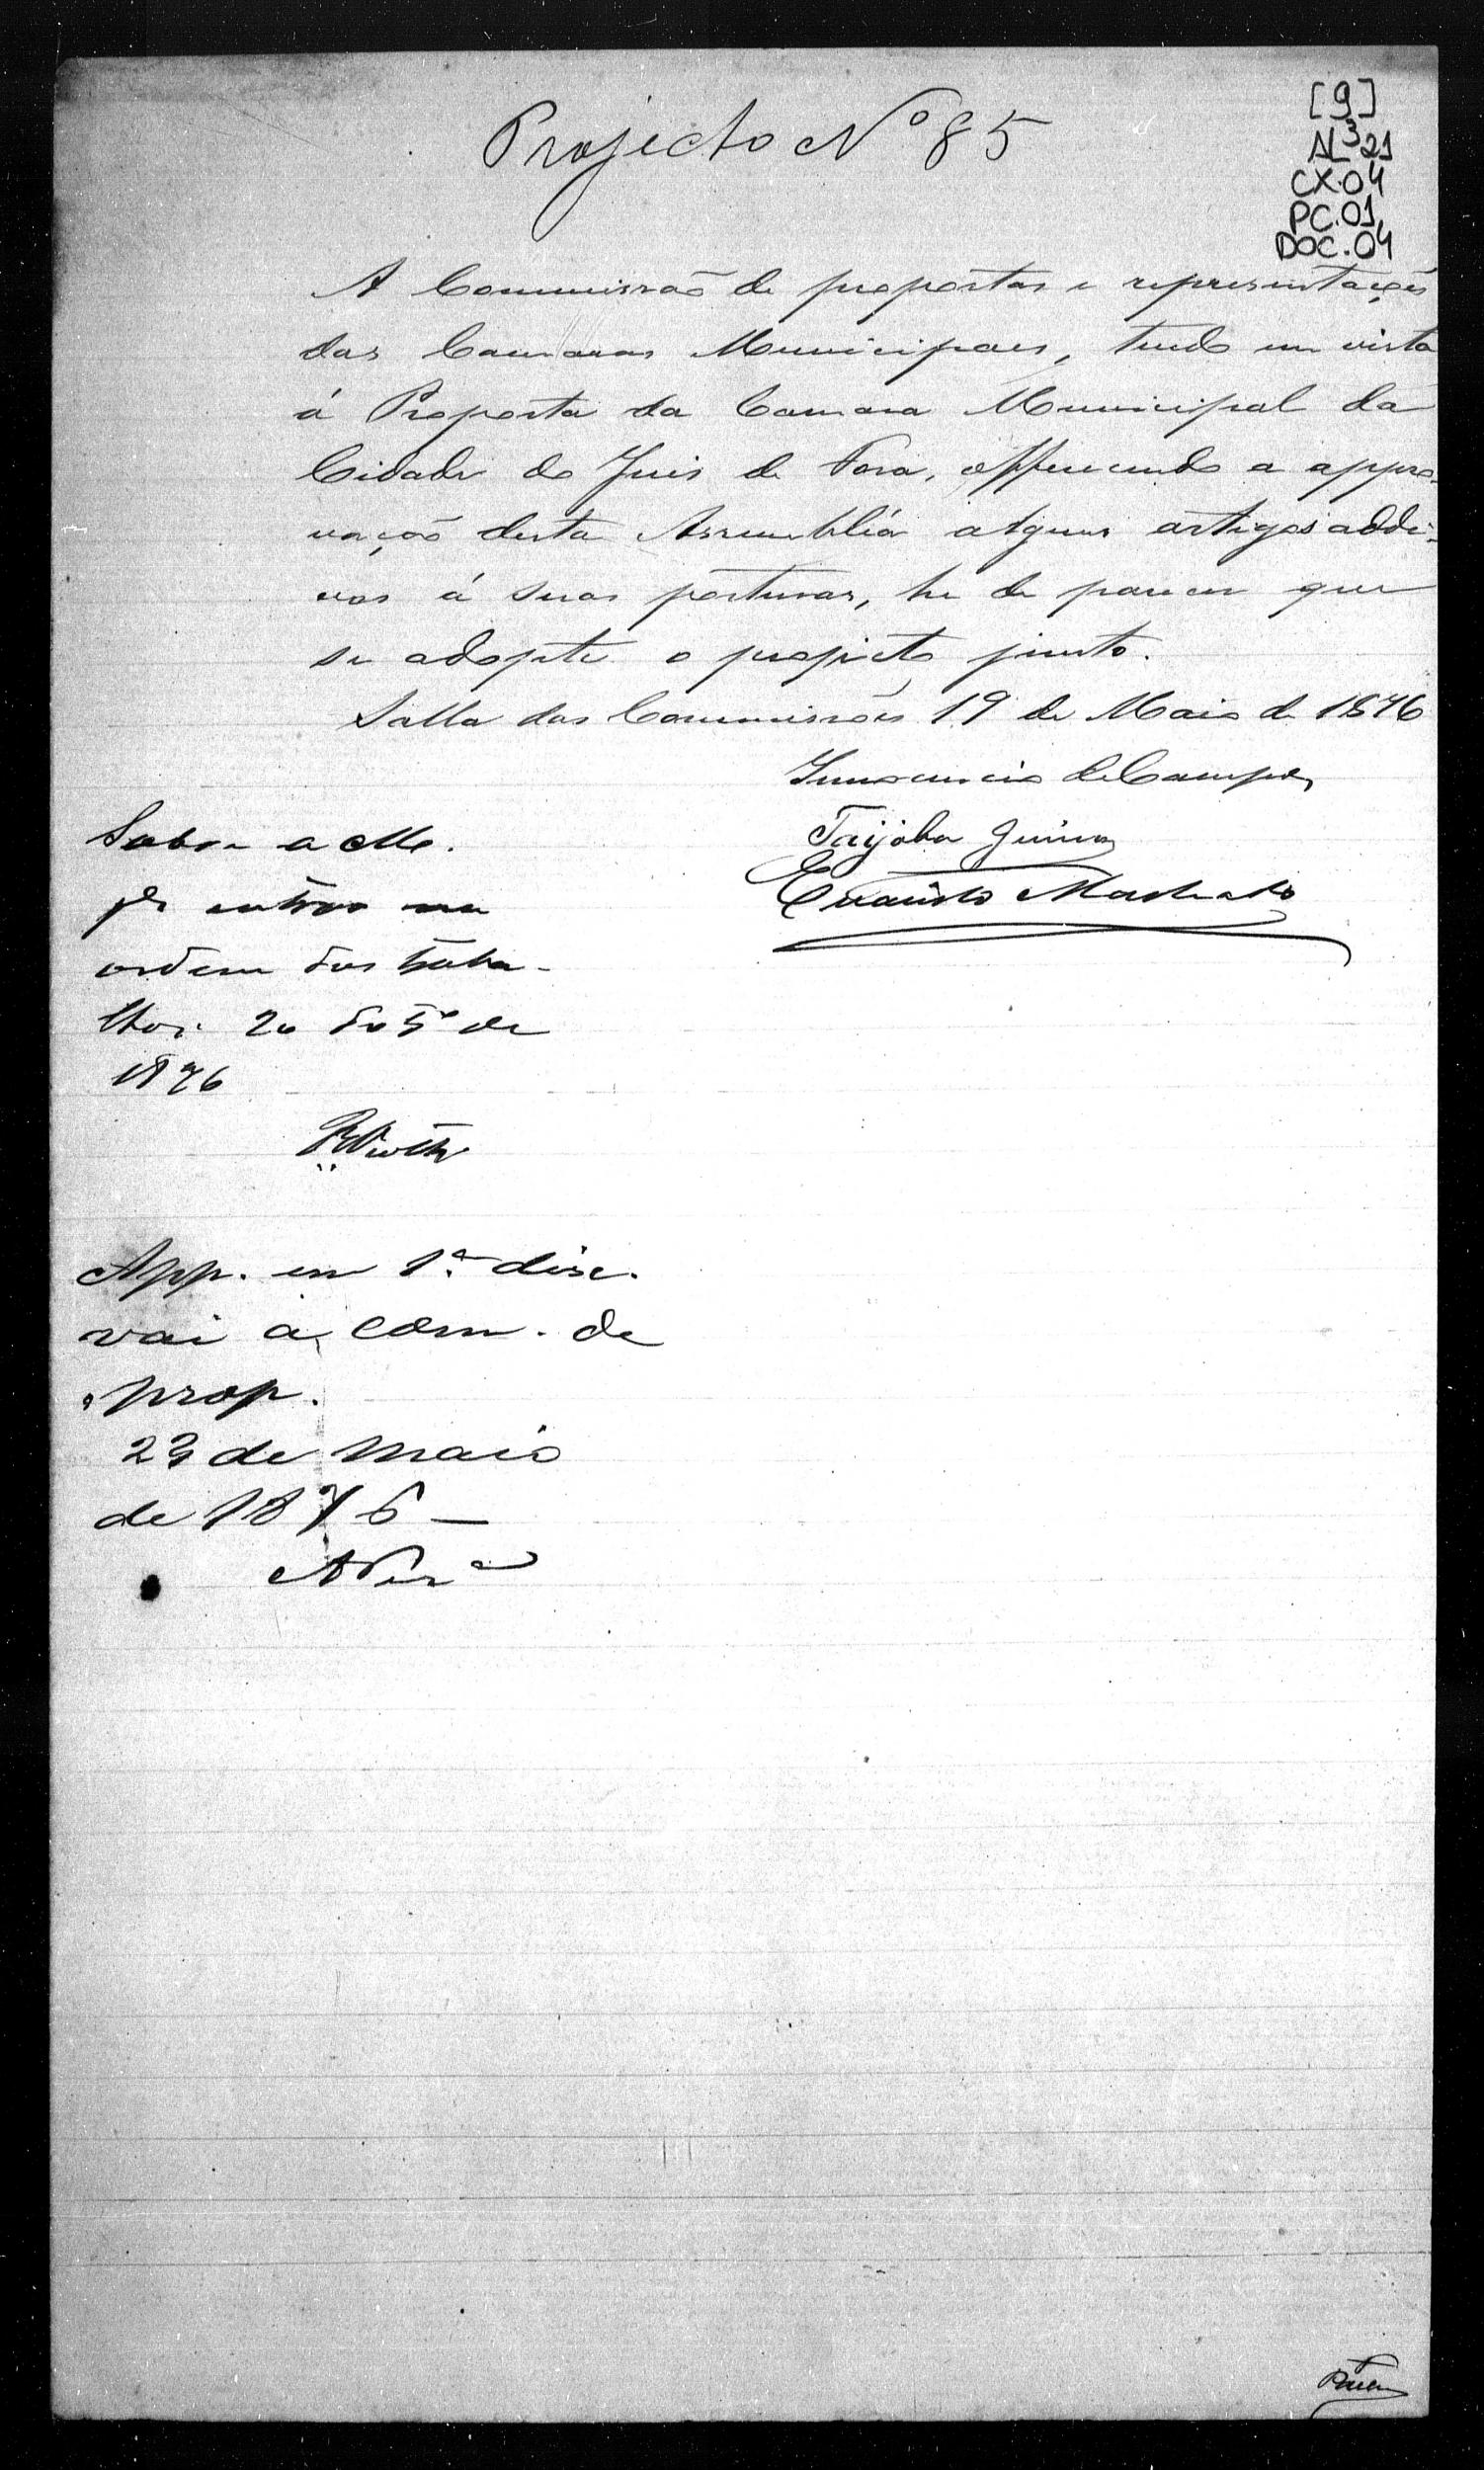 Projecto Nº 85
[9]
AL³21
CX.04
PC.01
DOC.04
A Commissão de propostas e representações
das Camaras Municipaes, tendo em vista
á Proposta da Camara Municipal da
Cidade do Juis de Fora, offerecendo a appro-
vação desta Assembléa alguns artigos addi-
vos á suas posturas, he de parecer que
se adopte o projecto junto.
Salla das Commissões 19 de Maio de 1876
Innocencio de Campos
Evaristo Machado
a M.
pa entrar na
ordem dos traba-
lhos. 20 do 5º de
1876
App. em 1ª disc.
vai á com. de
prop.
23 de Maio
de 1876 —